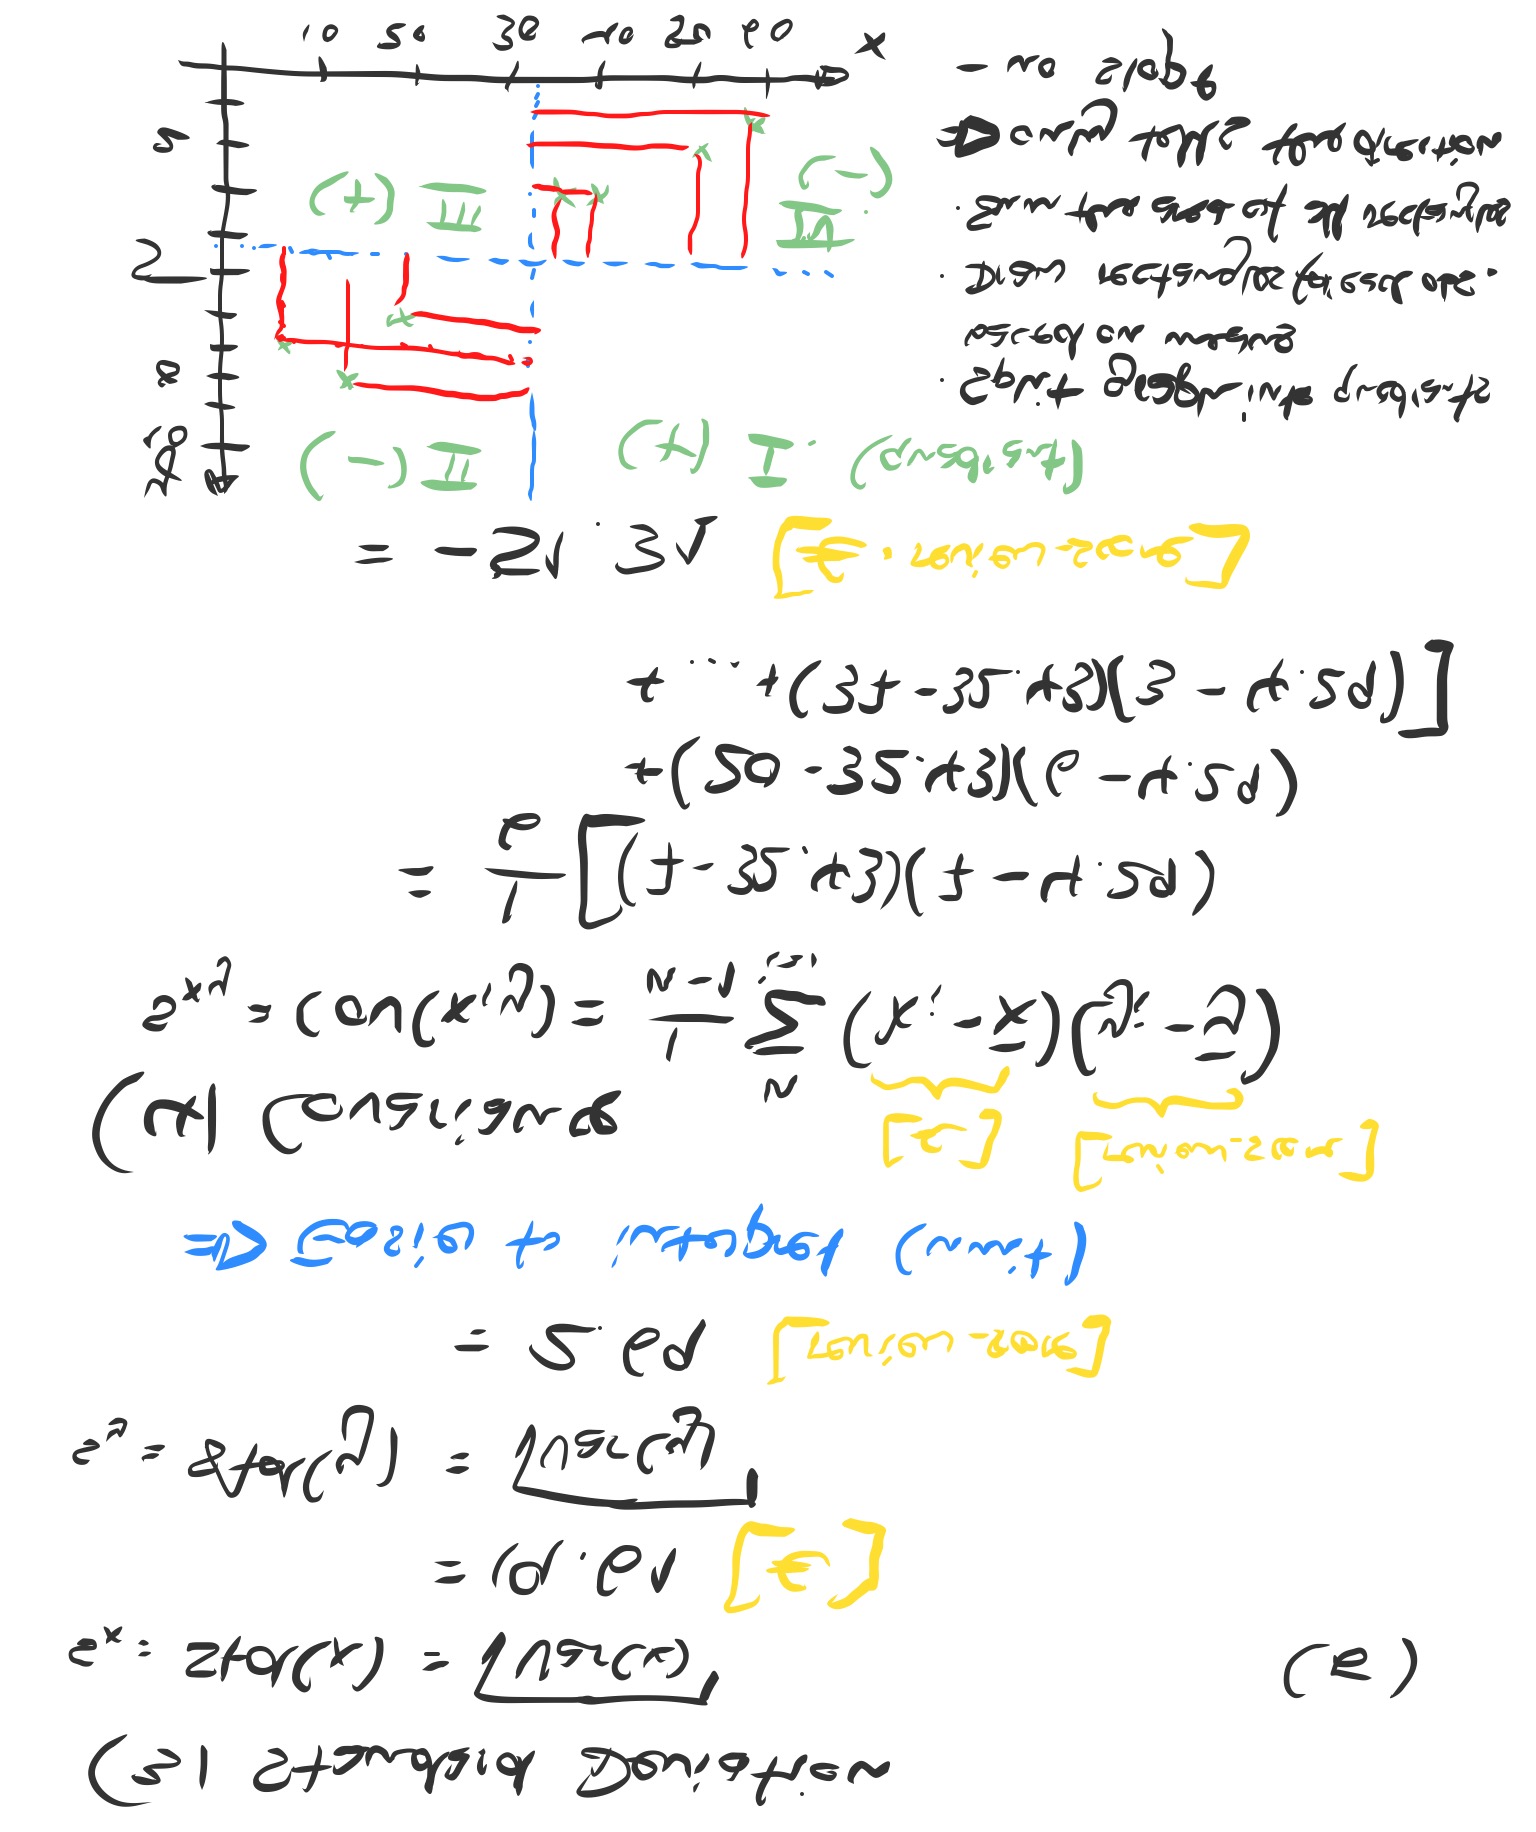 (3) Standard Deviation
s_x = std(x) = √Var(x) (5)
= 19.61 [€]
s_y = std(y) = √Var(y)
= 2.69 [review_score]
⇒ Easier to interpret (unit)
[€] [review_score]
(4) Covariance
s_xy = Cov(x,y) = 1/(n-1) Σ_{i=1}^{n} (x_i - x̄)(y_i - ȳ)
= 1/6 [(7-32.43)(7-4.29)
+(20-32.43)(6-4.29)
+ ... +(37-32.43)(3-4.29)]
= -51.31 [€ · review_score]
y (-) II (+) I. (quadrant)
10
8
5
(+) III IV.
(-)
2
10 20 30 40 50 60 x
· Split graph into quadrants
based on means
· Draw rectangles for each obs.
· Sum the area of all rectangles
⇒ only tells the direction
- no slope